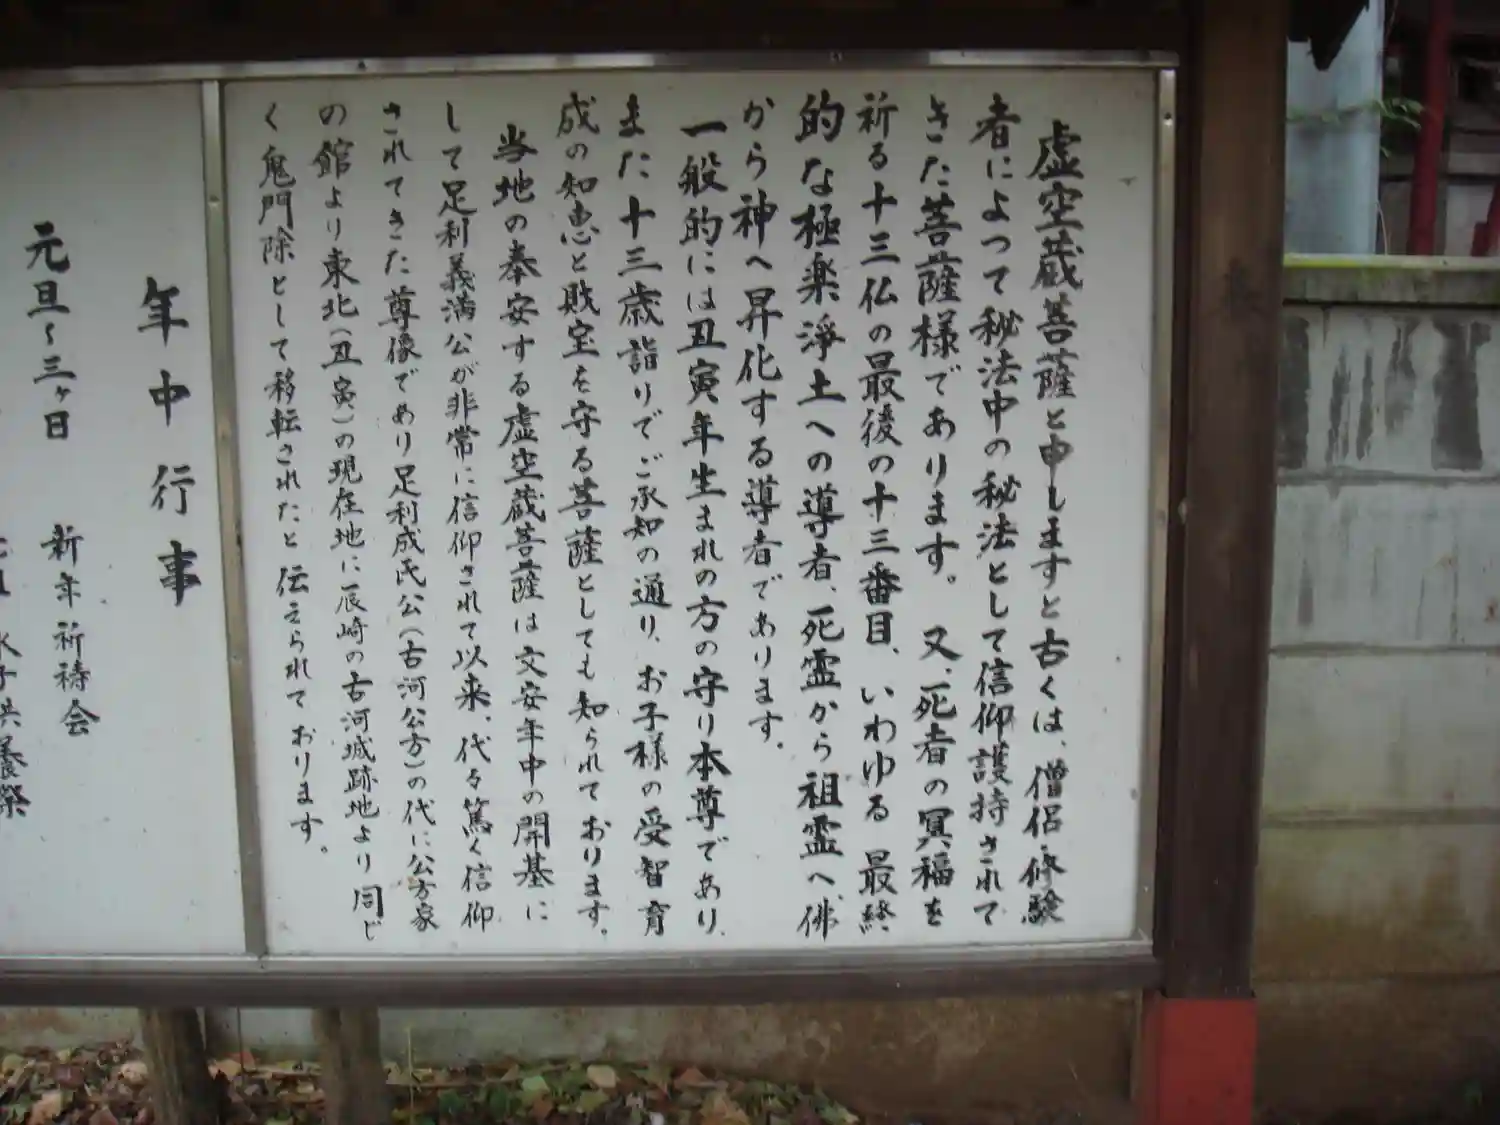 虚空蔵菩薩と申しますと古くは、僧侶・修験
者によって秘法中の秘法として信仰護持されて
きた菩薩様であります。又、死者の冥福を
祈る十三仏の最後の十三番目、いわゆる最終
的な極楽淨土への導者、死霊から祖霊へ、佛
から神へ昇化する導者であります。
一般的には丑寅年生まれの方の守り本尊であり、
また十三歳詣りでご承知の通り、お子様の受智育
成の知恵と財宝を守る菩薩としても知られております。
当地の奉安する虚空蔵菩薩は文安年中の開基に
して足利義満公が非常に信仰されて以来、代々篤く信仰
されてきた尊像であり足利成氏公(古河公方)の代に公方家
の館より東北(丑寅)の現在地に辰崎の古河城跡地より同じ
く鬼門除として移転されたと伝えられております。
年中行事
元旦〜三ヶ日 新年祈祷会
水子供養祭